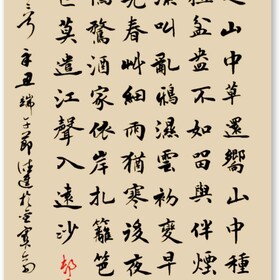 山中草還嚮山中種
盆盎不如留與伴煙
叫亂鴉濕雲初變早
春艸細雨猶寒後夜
驚酒家依岸扎籬笆
莫遣江聲入遠沙
辛丑端午節